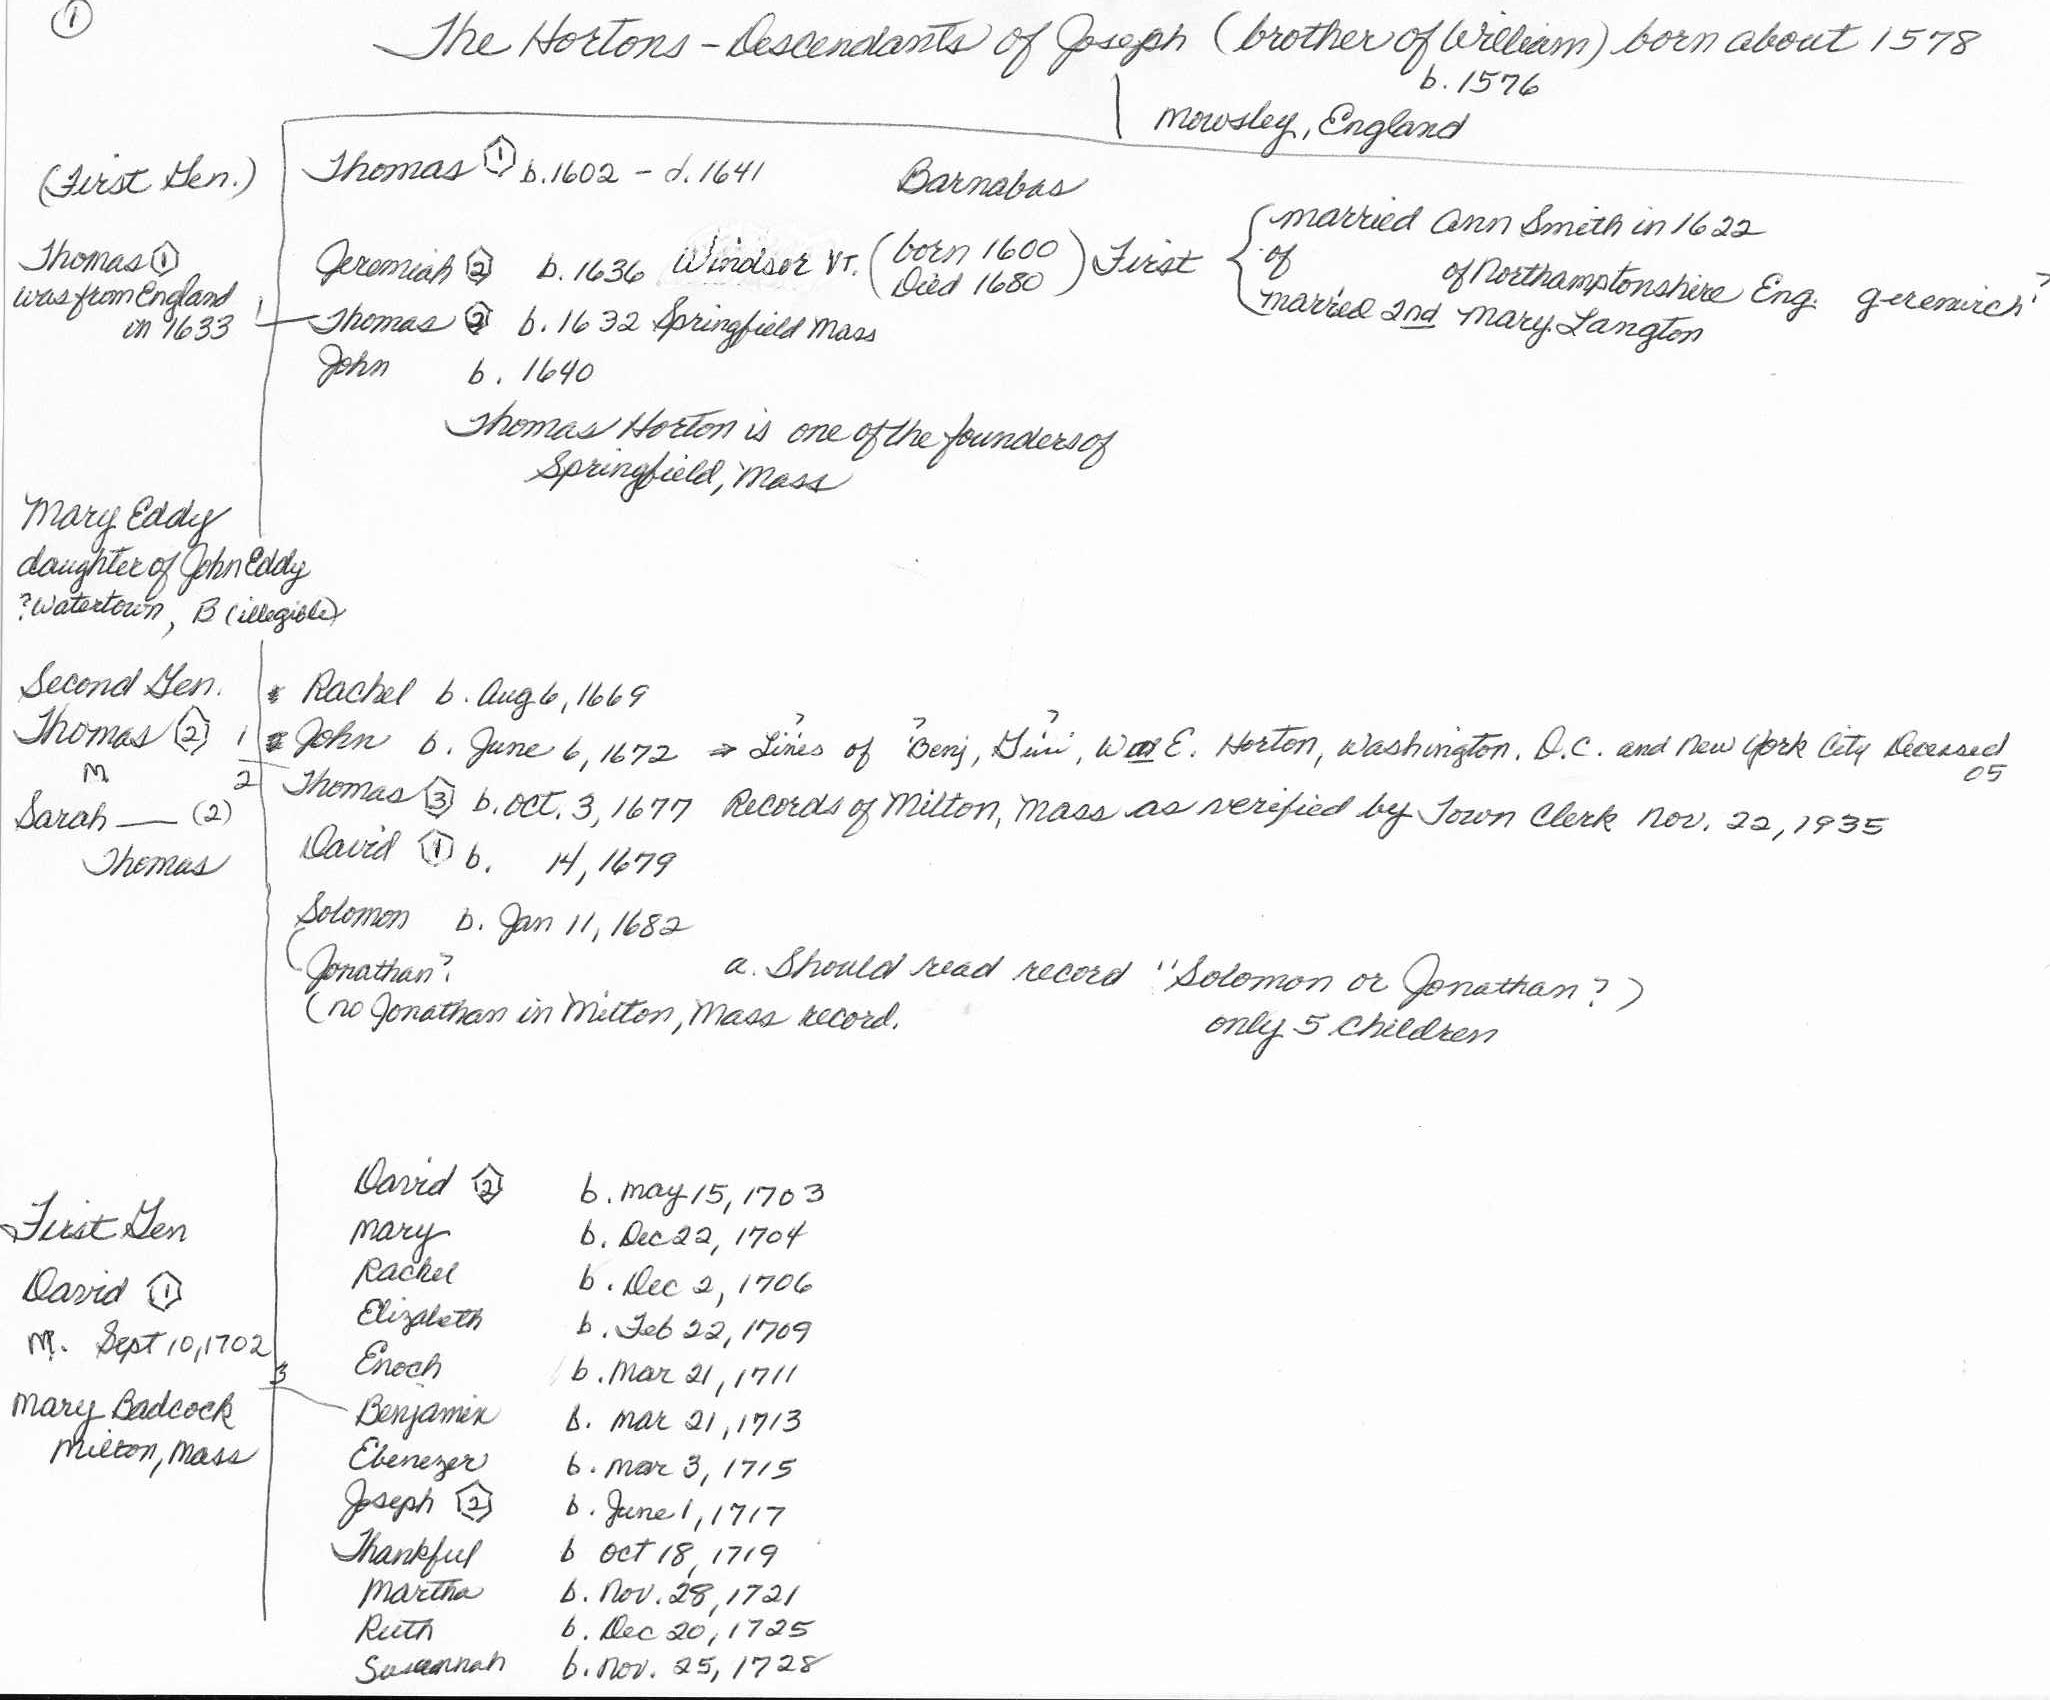 1
The Hortons - Descendants of Joseph (brother of William) born about 1578
b. 1576
Mowsley, England
(First Gen.)
Thomas 1 b. 1602 - d. 1641
Barnabas
Thomas 1
was from England
in 1633
Jeremiah 2 b. 1636 Windsor Vt.
(born 1600
Died 1680)
First
{ married Ann Smith in 1622
of
of Northamptonshire Eng.
married 2nd Mary Langton
1
Thomas 2 b. 1632 Springfield Mass
John b. 1640
Thomas Horton is one of the founders of
Springfield, Mass
Mary Eddy
daughter of John Eddy
? Watertown, B (illegible)
Second Gen.
Thomas 2
M
Sarah ___ (2)
Thomas
Rachel b. Aug 6, 1669
1 John b. June 6, 1672 ⇒ Lines of ? Benj, ? E. Horton, Washington. D.C. and New York City Deceased
05
2 Thomas 3 b. Oct. 3, 1677 Records of Milton, Mass as verified by Town Clerk Nov. 22, 1935
David 1 b. 14, 1679
Solomon b. Jan 11, 1682
(Jonathan?
(no Jonathan in Milton, Mass record.
a. Should read record "Solomon or Jonathan?)
only 5 Children
First Gen
David 1
M. Sept 10, 1702
Mary Badcock
Milton, Mass
David 2 b. May 15, 1703
Mary b. Dec 22, 1704
Rachel b. Dec 2, 1706
Elizabeth b. Feb 22, 1709
Enoch b. Mar 21, 1711
3 Benjamin b. Mar 21, 1713
Ebenezer b. Mar 3, 1715
Joseph 2 b. June 1, 1717
Thankful b Oct 18, 1719
Martha b. Nov. 28, 1721
Ruth b. Dec 20, 1725
Susannah b. Nov. 25, 1728